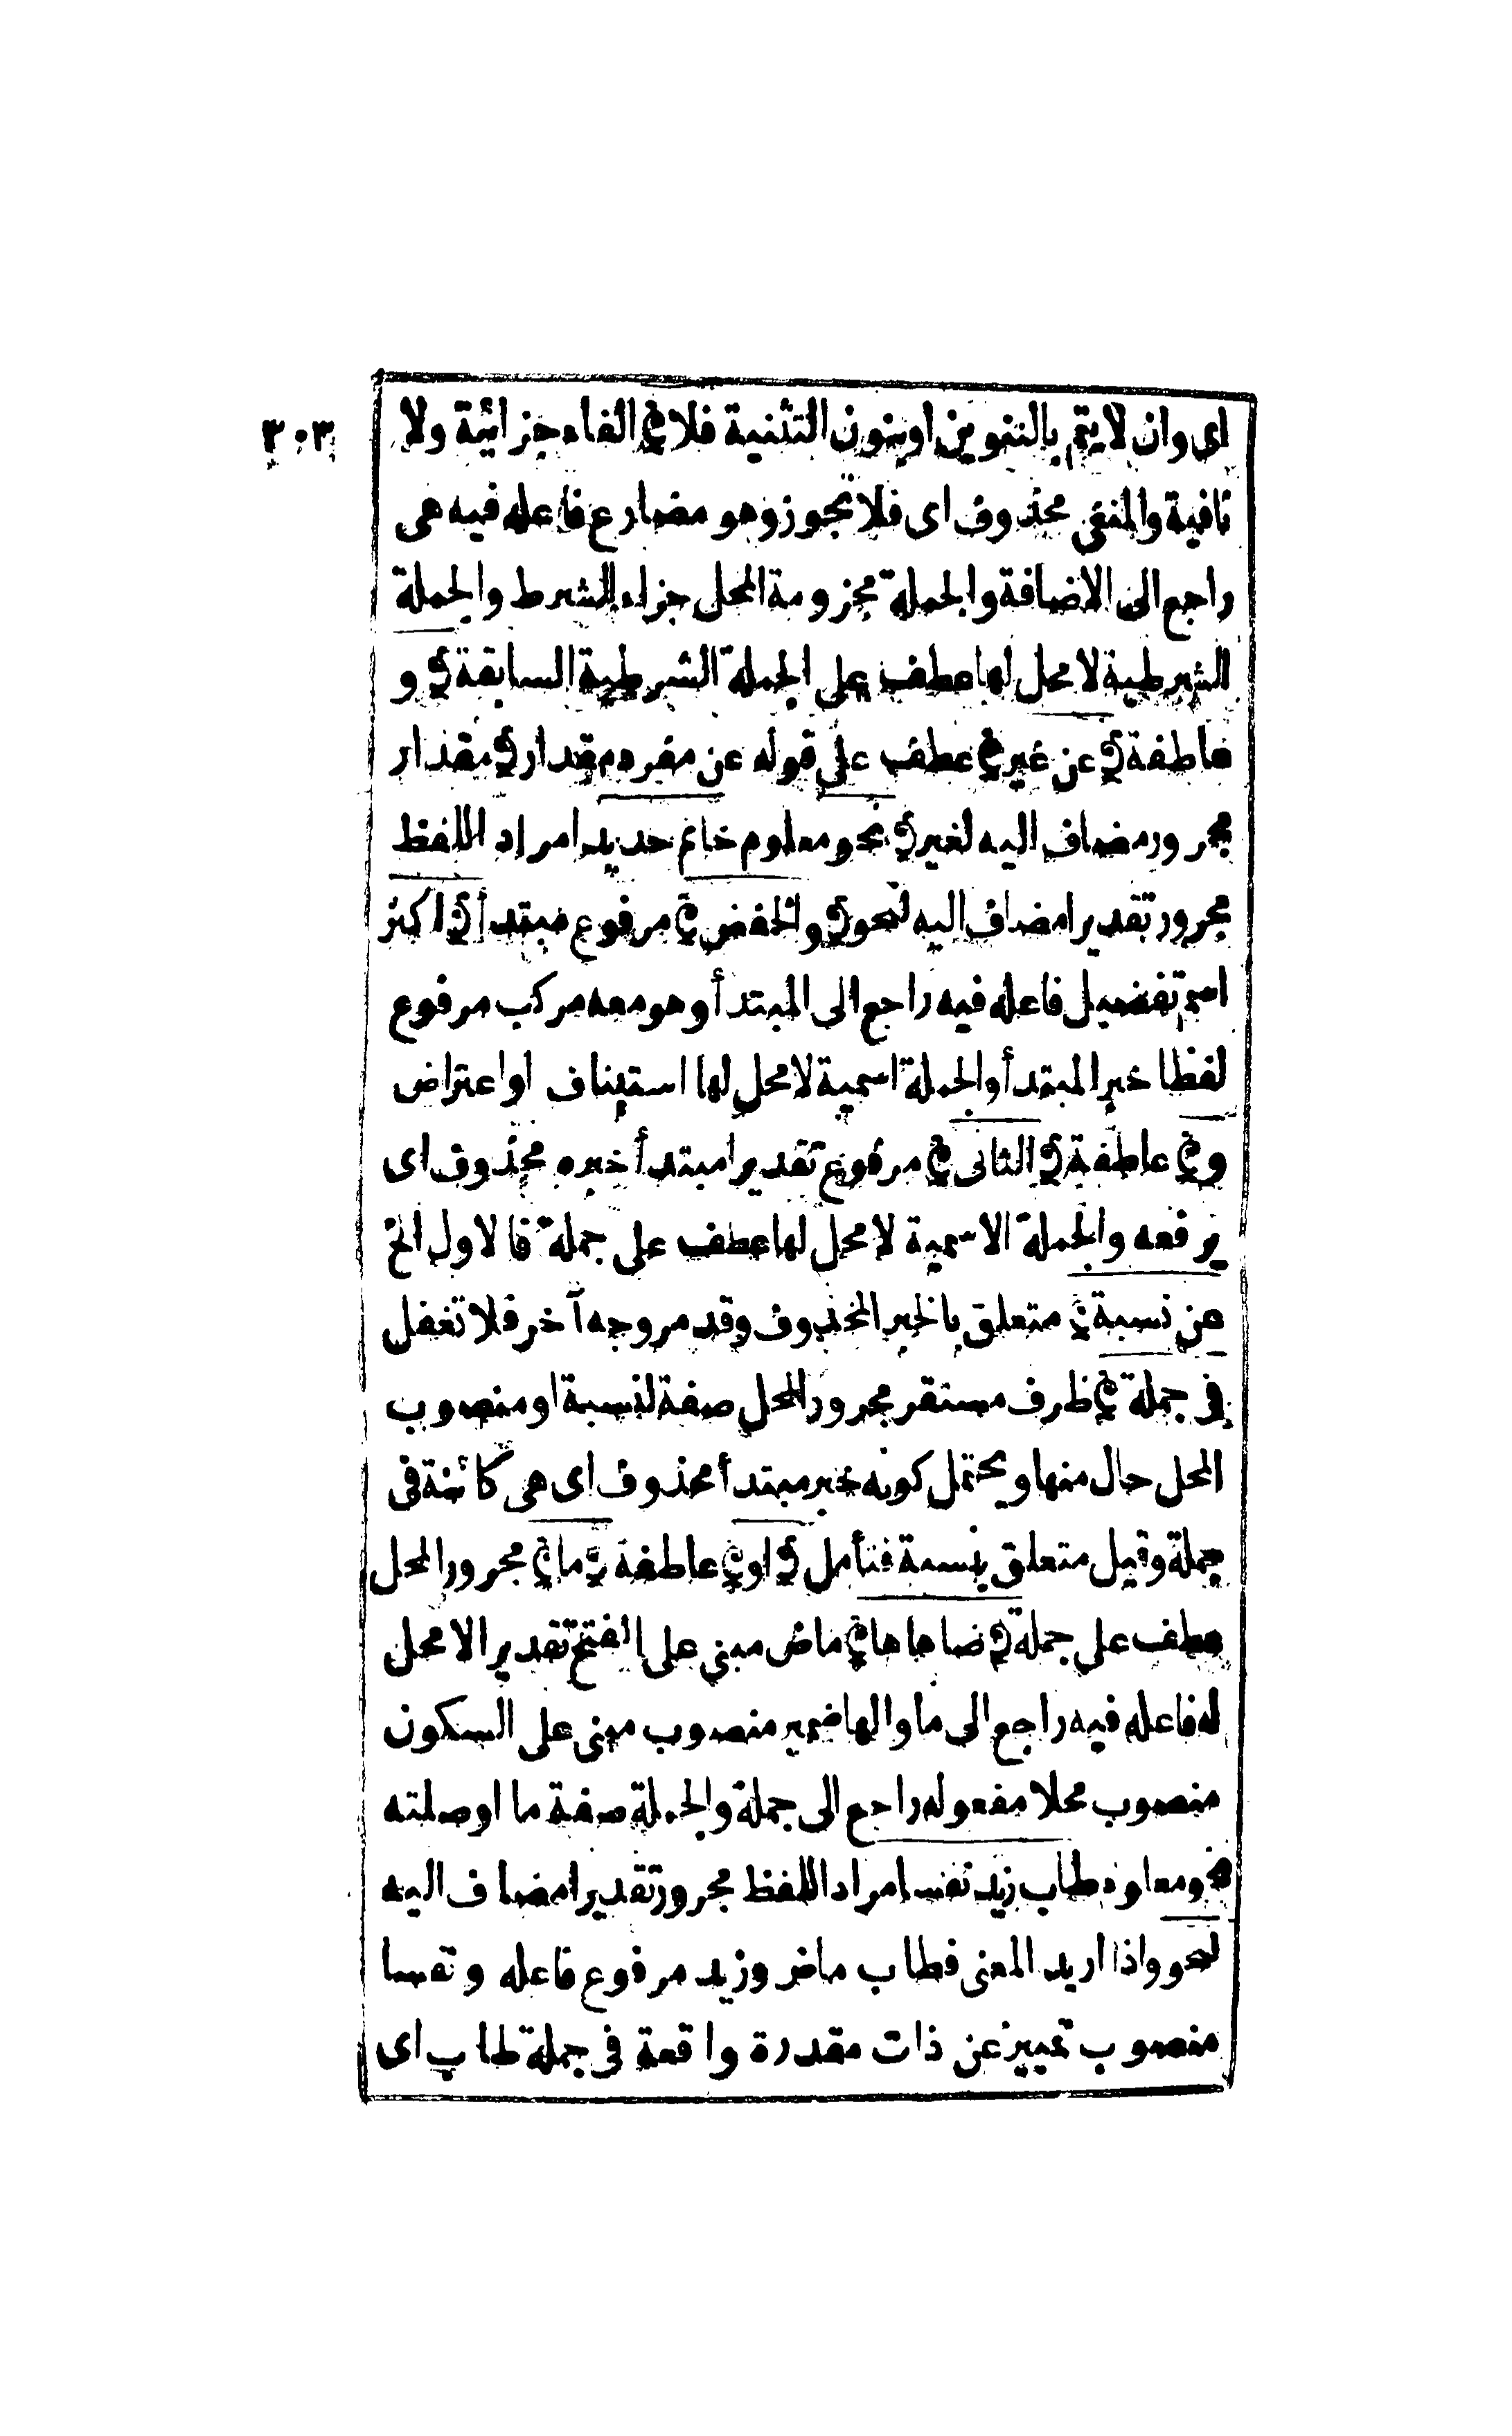 ٣٠٣
اى وان لا يتم بالتنوين او بنون التثنية فلا ﴾ الفاء جزائية ولا
نافية والمنفى محذوف اى فلا تجوز وهو مضارع فاعله فيه هى
راجع الى الاضافة والجملة مجزومة المحل جزاء الشرط والجملة
الشرطية لا محل لها عطف على الجملة الشرطية السابقة ﴿ و
عاطفة ﴿ عن غير ﴾ عطف على قوله عن مفرد مقدار ﴿ مقدار
مجرور مضاف اليه لغير ﴿ نحو معلوم خاتم حديد امراد اللفظ
مجرور تقديرا مضاف اليه لنحو ﴿ والخفض ﴾ مرفوع مبتدأ ﴿ اكثر
اسم تفضيل فاعله فيه راجع الى المبتدأ وهو معه مركب مرفوع
لفظا خبر المبتدأ والجملة اسمية لا محل لها استيناف او اعتراض
و ﴾ عاطفة ﴿ الثانى ﴾ مرفوع تقديرا مبتدأ خبره محذوف اى
يرفعه والجملة الاسمية لا محل لها عطف على جملة فالاول الخ
عن نسبة ﴾ متعلق بالخبر المحذوف وقد مر وجه آخر فلا تغفل
فى جملة ﴾ ظرف مستقر مجرور المحل صفة لنسبة او منصوب
المحل حال منها ويحتمل كونه خبر مبتدأ محذوف اى هى كائنة فى
جملة وقيل متعلق بنسبة فتأمل ﴿ او ﴾ عاطفة ﴿ ما ﴾ مجرور المحل
عطف على جملة ﴿ ضاهاها ﴾ ماض مبنى على الفتح تقديرا لا محل
له فاعله فيه راجع الى ما والها ضمير منصوب مبنى على السكون
منصوب محلا مفعوله راجع الى جملة والجملة صفة ما او صلته
نحو معلوم طاب زيد نفسا مراد اللفظ مجرور تقديرا مضاف اليه
لنحو واذا اريد المعنى فطاب ماض وزيد مرفوع فاعله ونفسا
منصوب تمييز عن ذات مقدرة واقعة فى جملة طاب اى